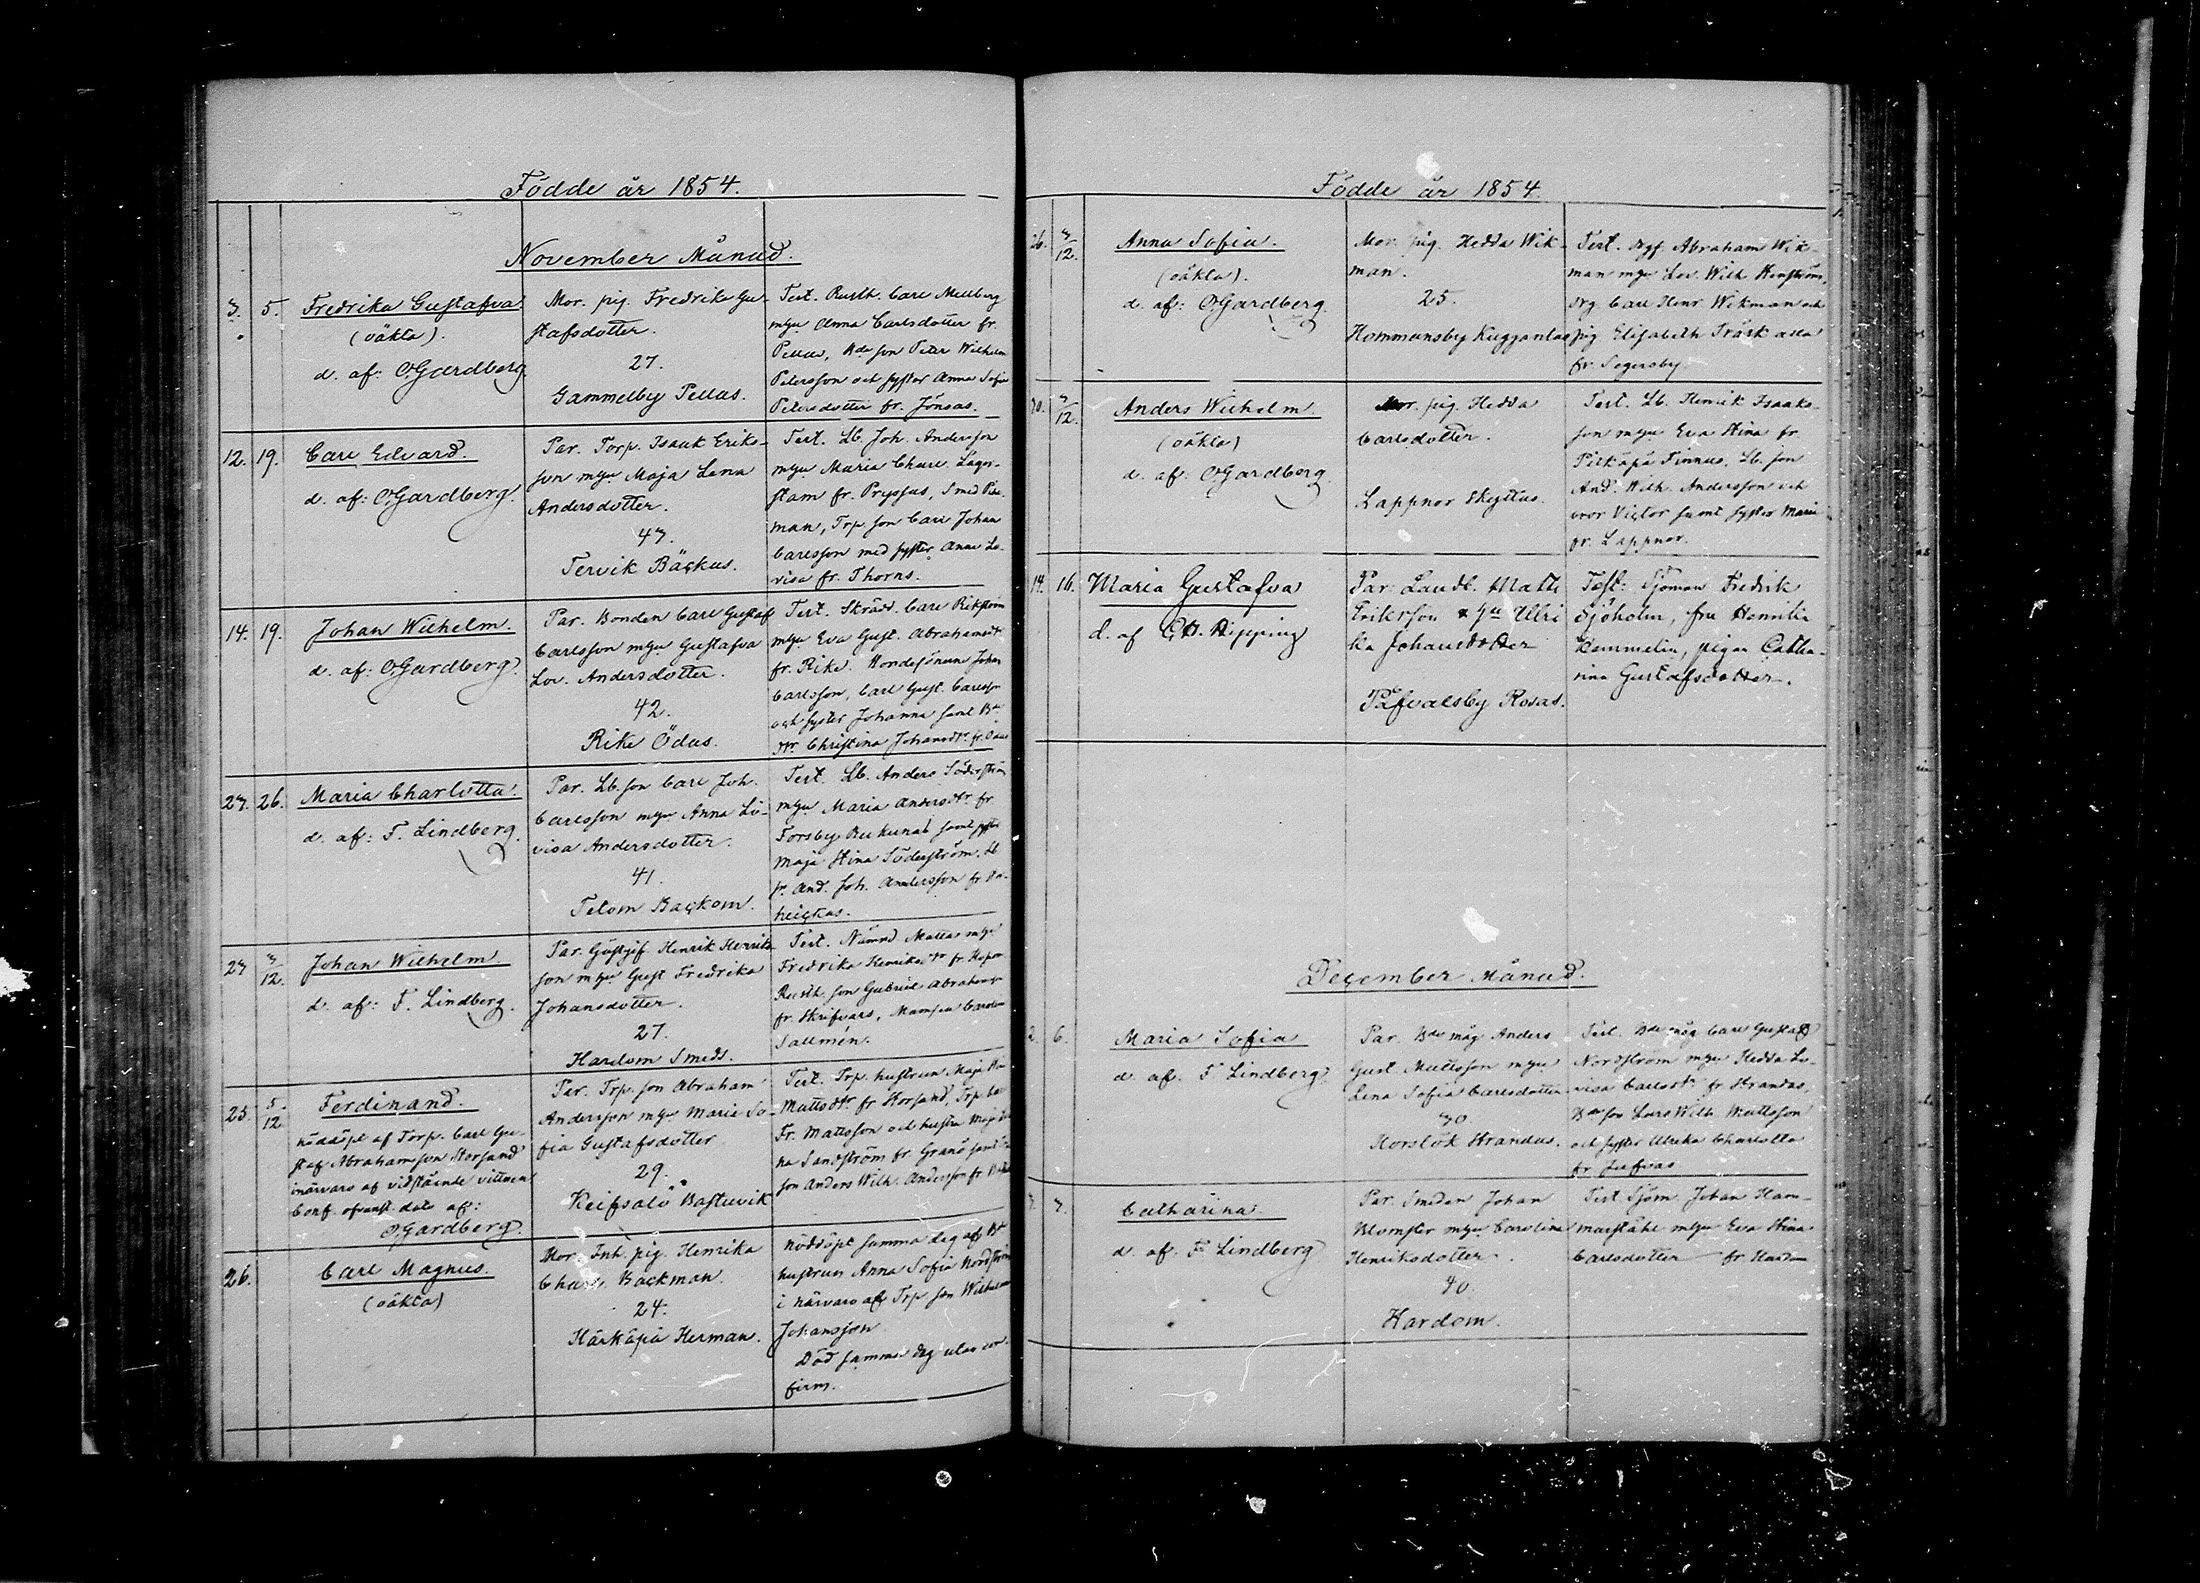 Födde år 1854.
November Månad.
3. 5. Fredrika Gustafva.
(oäkta).
d. af: O.Gardberg.
Mor. pig. Fredrika Gu-
stafsdotter.
27.
Gammelby Pellas.
Test. Rusth. Carl Mellberg
mhu Anna Carlsdotter fr.
Pellas, Bde son Peter Wilhelm
Petersson och syster Anna Sofia
Petersdotter fr. Jönsas.
12. 19. Carl Edvard.
d. af: O.Gardberg.
Par. Torp. Isaak Eriks-
son mhu Maja Lena
Andersdotter.
43.
Tervik Bäckus.
Test. Lb. Joh. Andersson
mhu Maria Charl. Lager-
stam fr. Pryssas, Smed
man, Trp son Carl Johan
Carlsson med syster Anna Lo-
visa fr. Thorns.
14. 19. Johan Wilhelm.
d. af: O.Gardberg.
Par. Bonden Carl Gustaf
Carlsson mhu Gustafva
Lov. Andersdotter.
42.
Rike Ödas.
Test. Skrädd. Carl Rikström
mhu Eva Gust. Abrahamsdr
fr. Rike. Bondesönerne Johan
Carlsson, Carl Gust. Carlsson
och syster Johanna samt Bde
dtr Christina Johansdtr fr.
23. 26. Maria Charlotta.
d. af: F. Lindberg.
Par. Lb. son Carl Joh.
Carlsson mhu Anna Lo-
visa Andersdotter.
41.
Tetom Backom.
Test. Lb. Anders Söderström
mhu Maria Andersdtr fr.
Forsby samt syster
Maja Stina Söderström. Lb
sn And. Joh. Andersson fr
23 3/12. Johan Wilhelm.
d. af: F. Lindberg.
Par. Gästgif. Henrik Henriks-
son mhu Gust Fredrika
Johansdotter.
27.
Hardom Smeds.
Test. Nämnd. Mattas mhu
Fredrika Henriksdtr fr
Rusth. son Gabriel Abrahams
fr. Skrifvars, Mamsell
Sallmén.
25. 5/12. Ferdinand.
nöddöpt af Torp. Carl Gu-
staf Abrahamsson Storsand
i närvaro af vidstående vittnen
Conf. ofvanst. dato af:
O.Gardberg.
Par. Trp. son Abraham
Andersson mhu Maria So-
fia Gustafsdotter
29.
Keifsalö Bastuvik
Test. Trp. hustrun Maja
Mattsdtr fr Storsand, Trp
Fr. Mattsson och hustru Maja
na Sandström fr Granö samt
son Anders Wilh. Andersson fr
26. Carl Magnus.
(oäkta)
Mor. Inh. pig. Henrika
Charl. Backman.
24.
Härkäpä Herman.
Nöddöpt samma dag af Bde
hustrun Anna Sofia Nordström
i närvaro af Trp son Wilhelm
Johansson
Död samma dag utan con-
firm.
Födde år 1854.
26. 3/12. Anna Sofia.
(oäkta).
d. af: O.Gardberg.
Mor. pig. Hedda Wik-
man.
25.
Kommunsby Kuggenlas
Test. Abraham Wik-
man mhu Lov. Wilh.
drg Carl Henr. Wikman och
pig Elisabeth Träsk alla
fr. Segersby.
30. 3/12. Anders Wilhelm
(oäkta)
d. af: O.Gardberg.
Mor. pig. Hedda
Carlsdotter.
Lappnor Skyttas.
Test. Lb. Henrik Isaaks-
son mhu Eva Stina fr
Pitkäpä Finnus, Lb. son
And. Wilh. Andersson och
bror Victor samt syster Maria
fr. Lappnor.
14. 16. Maria Gustafva
d. af C.H. Ripping
Par. Landb. Matts
Eriksson & Hu Ulri
ka Johansdotter
Påfvalsby Rosas.
Test. Sjöman Fredrik
Sjöholm, fru Henrika
Hemmelin, pigan Catha-
rina Gustafsdotter.
December Månad.
2. 6. Maria Sofia
d. af. F Lindberg.
Par. Bde måg Anders
Gust Mattsson mhu
Lena Sofia Carlsdotter
30
Horslök Strandas.
Test. Bde måg Carl Gustaf
Nordström mhu Hedda Lo-
visa Carlsdtr fr Strandas,
Bde son Lars Wilh. Mattsson
och syster Ulrika Charlotta
fr Jufvas
3. 7. Catharina.
d. af. F Lindberg
Par. Smeden Johan
Blomster mhu Carolina
Henriksdotter.
40.
Hardom.
Test Sjöm. Johan Ham-
marståhl mhu Eva Stina
Carlsdotter fr Hardom